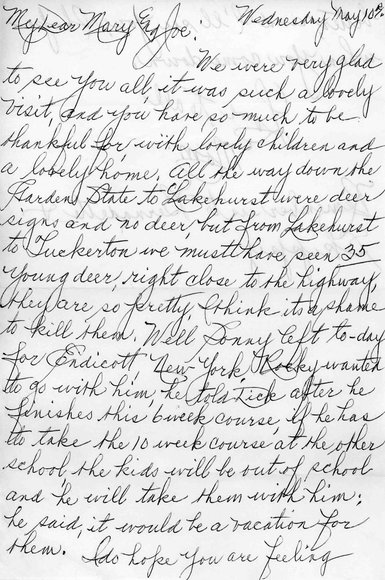 My Dear Mary Eng Joe. Wednesday May 10th.
We were very glad
to see you all, it was such a lovely
visit, and you have so much to be
thankful for, with lovely children and
a lovely home. All the way down the
Gardens State to Lakehurst were deer
signs and no deer, but from Lakehurst
to Tuckerton we must have seen 35
young deer, right close to the highway,
they are so pretty, I think its a shame
to kill them. Well Sonny left to-day
for Endicott, New York, Rocky wanted
to go with him, he told Dick after he
finishes this 6 week course, if he has
to take the 10 week course at the other
school, the kids will be out of school
and he will take them with him;
he said, it would be a vacation for
them. I do hope you are feeling